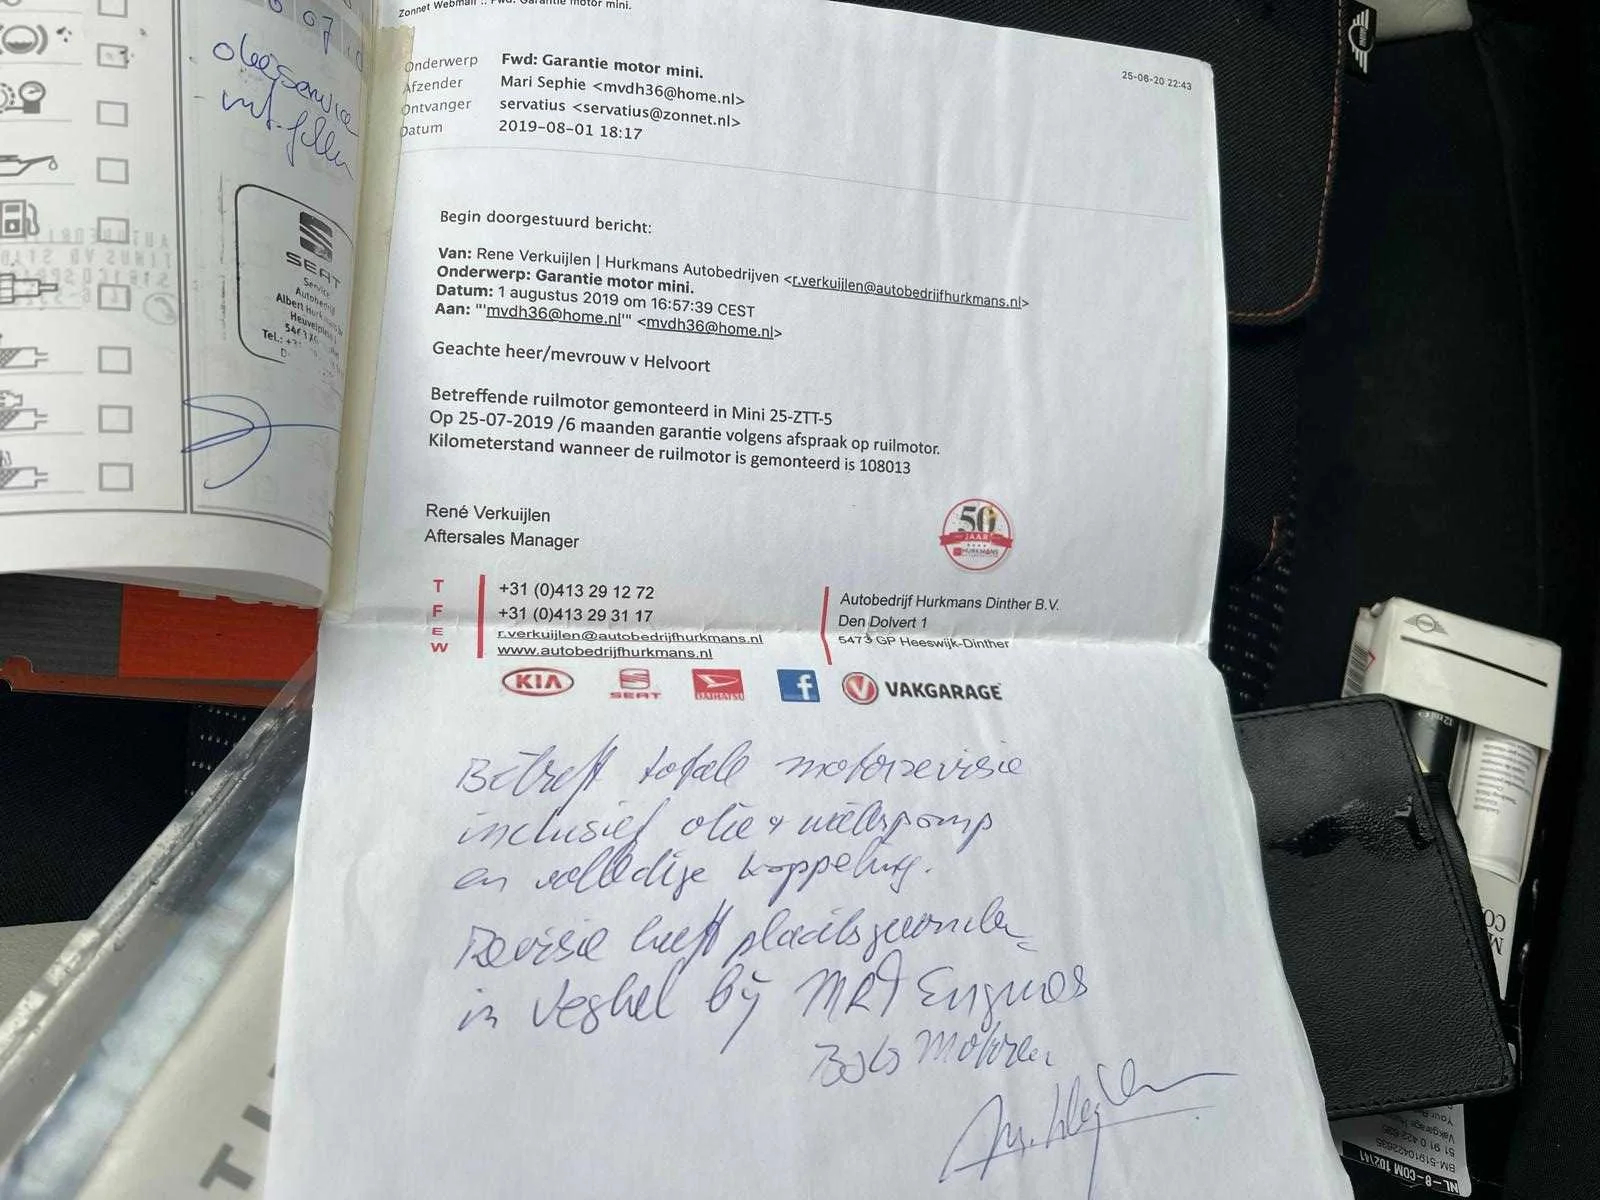 07
olieservice
SEAT
Service
Autobedrijf
Albert Hurkmans
Heuvelplein
Tel.:
Zonnet Webmail :: Fwd: Garantie motor mini.
25-06-20 22:43
Onderwerp Fwd: Garantie motor mini.
Afzender Mari Sephie <mvdh36@home.nl>
Ontvanger servatius <servatius@zonnet.nl>
Datum 2019-08-01 18:17
Begin doorgestuurd bericht:
Van: Rene Verkuijlen | Hurkmans Autobedrijven <r.verkuijlen@autobedrijfhurkmans.nl>
Onderwerp: Garantie motor mini.
Datum: 1 augustus 2019 om 16:57:39 CEST
Aan: "'mvdh36@home.nl'" <mvdh36@home.nl>
Geachte heer/mevrouw v Helvoort
Betreffende ruilmotor gemonteerd in Mini 25-ZTT-5
Op 25-07-2019 /6 maanden garantie volgens afspraak op ruilmotor.
Kilometerstand wanneer de ruilmotor is gemonteerd is 108013
René Verkuijlen
Aftersales Manager
50
JAAR
HURKMANS
T +31 (0)413 29 12 72
F +31 (0)413 29 31 17
E r.verkuijlen@autobedrijfhurkmans.nl
W www.autobedrijfhurkmans.nl
Autobedrijf Hurkmans Dinther B.V.
Den Dolvert 1
5473 GP Heeswijk-Dinther
KIA SEAT DAIHATSU f V VAKGARAGE
Betreft totale motorrevisie
inclusief olie + waterpomp
en volledige koppeling.
Revisie heeft plaatsgevonden
in Veghel bij MRT Engines
Motoren
NL-8-COM 102141
BM-51910422635
51 91 0 422 635
12ml